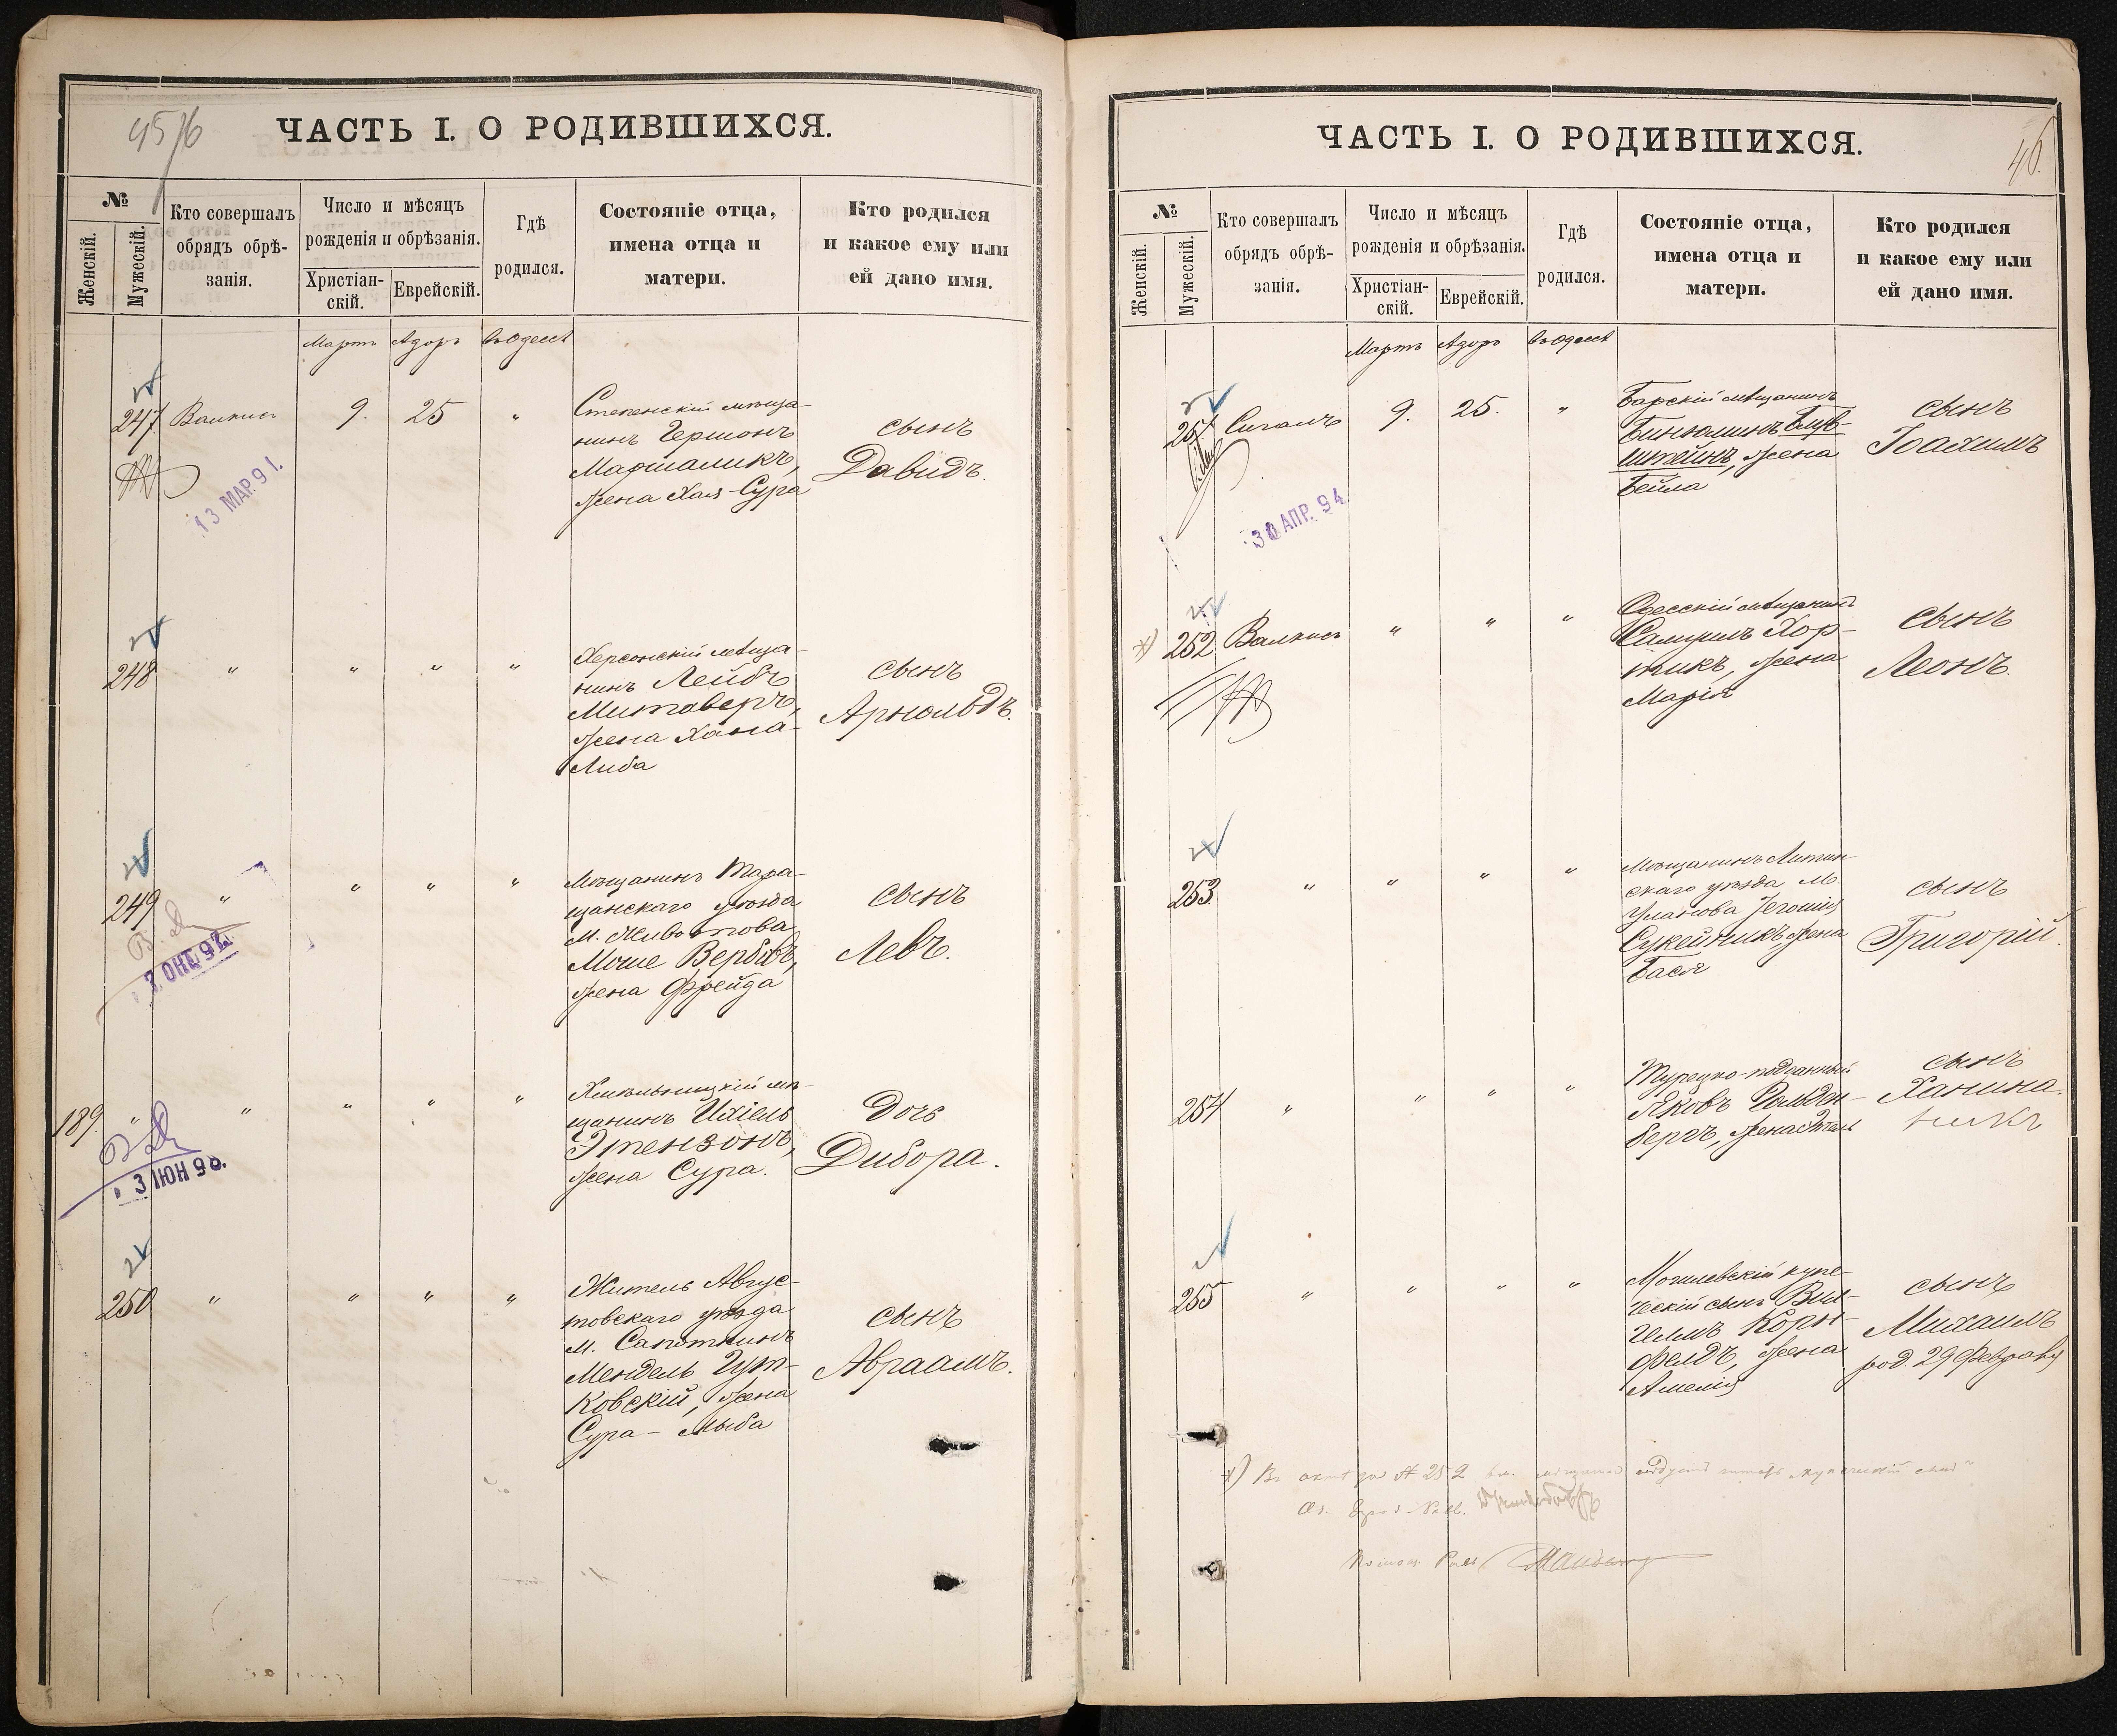 45 76
ЧАСТЬ I. О РОДИВШИХСЯ.
№
Женскій.
Мужескій.
Кто совершалъ
обрядъ обрѣ-
занія.
Число и мѣсяцъ
рожденія и обрѣзанія.
Христіан-
скій.
Еврейскій.
Гдѣ
родился.
Состояніе отца,
имена отца и
матери.
Кто родился
и какое ему или
ей дано имя.
Мартъ Адоръ въ Одессѣ
247 Валкисъ 9. 25 "
Степенскій мѣща-
нинъ Гершонъ
Маршаликъ,
жена Хая-Сура
сынъ
Давидъ.
13 МАР. 91.
248 " " " "
Херсонскій мѣща-
нинъ Лейбъ
Митаверъ,
жена Хана-
Либа
сынъ
Арнольдъ.
249 " " " "
Мѣщанинъ Тара-
щанскаго уѣзда
м. Животова
Моше Вербовъ,
жена Фрейда
сынъ
Левъ.
189 " " " " "
3 ІЮН 90.
Хмѣльницкій мѣ-
щанинъ Ихіель
Этензонъ,
жена Сура.
Дочь
Дибора.
250 " " " "
Житель Авгус-
товскаго уѣзда
м. Сапоткинъ
Мендель Гут-
ковскій, жена
Сура-
сынъ
Авраамъ.
46.
ЧАСТЬ I. О РОДИВШИХСЯ.
№
Женскій.
Мужескій.
Кто совершалъ
обрядъ обрѣ-
занія.
Число и мѣсяцъ
рожденія и обрѣзанія.
Христіан-
скій.
Еврейскій.
Гдѣ
родился.
Состояніе отца,
имена отца и
матери.
Кто родился
и какое ему или
ей дано имя.
Мартъ Адоръ въ Одессѣ
251 Сигалъ 9. 25. "
Барскій мѣщанинъ
Биньюминъ Блув-
штейнъ, жена
Бейла
сынъ
Іоахимъ
30 АПР. 94
*) 252 Валкисъ " " "
Одесскій мѣщанинъ
Самуилъ Хор-
жена
Марія
сынъ
Леонъ.
253 " " " "
Мѣщанинъ Литин-
скаго уѣзда м.
Уланова
Сукейникъ, жена
Бася
сынъ
Григорій.
254 " " " "
Турецко-подданный
Яковъ Гольден-
бергъ, жена
сынъ
Ханина.
255 " " " "
Могилевскій купе-
ческій сынъ Виль-
гелмъ Корн-
фелдъ, жена
Амелія
сынъ
Михаилъ
род. 29 Февраля
*) Въ актѣ № 252 вм. слѣдуетъ читать „купеческій сынъ"